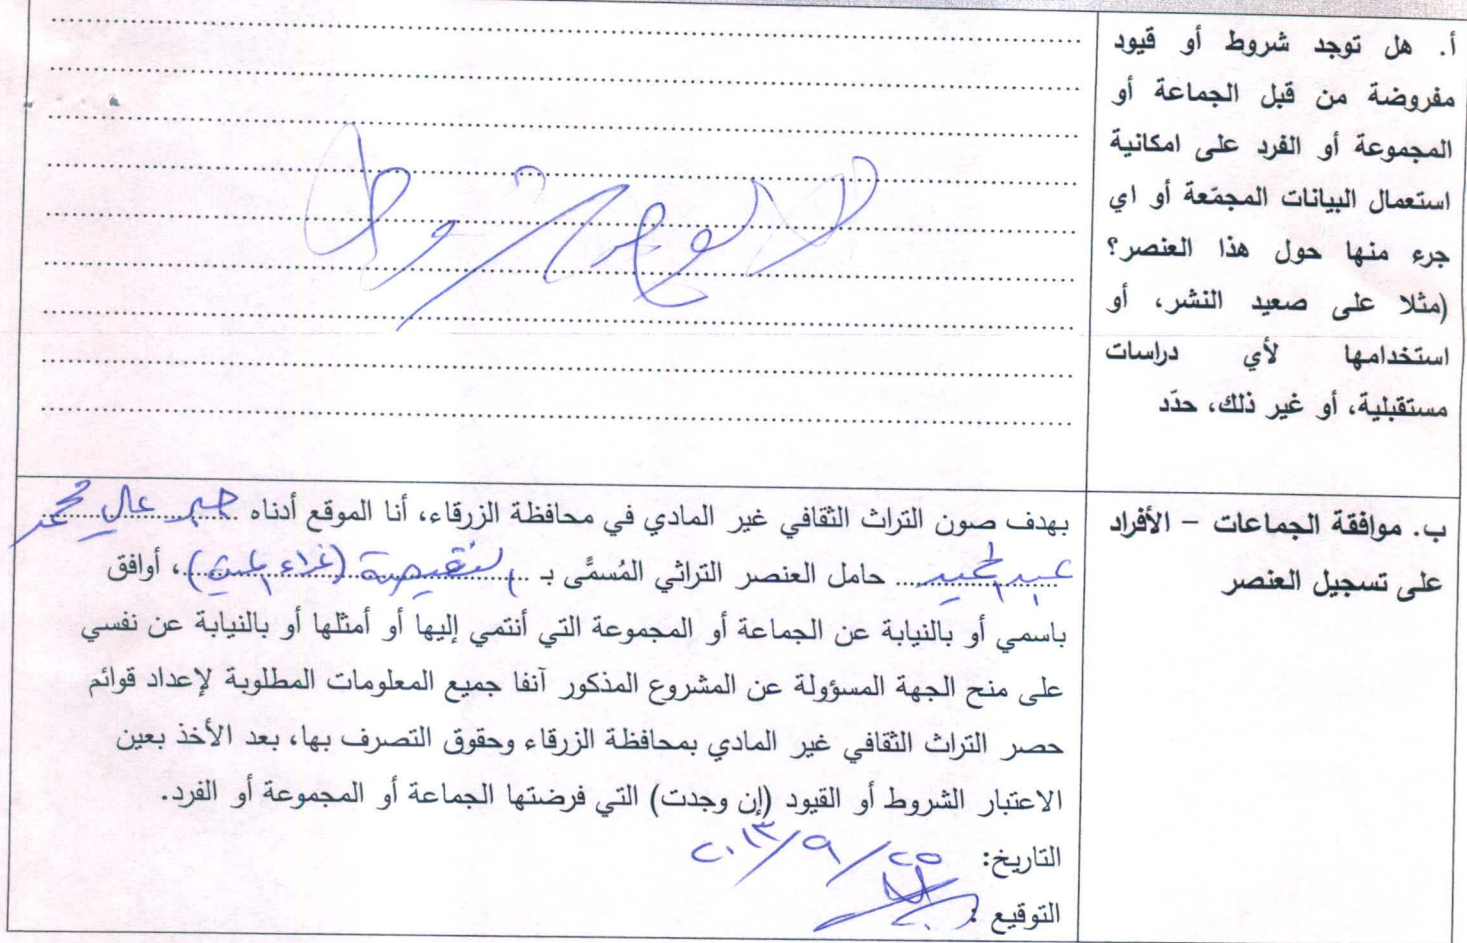 أ. هل توجد شروط أو قيود
مفروضة من قبل الجماعة أو
المجموعة أو الفرد على امكانية
استعمال البيانات المجمّعة أو اي
جرء منها حول هذا العنصر؟
(مثلا على صعيد النشر، أو
استخدامها لأي دراسات
مستقبلية، أو غير ذلك، حدّد
لا يوجد شروط
ب. موافقة الجماعات - الأفراد
على تسجيل العنصر
بهدف صون التراث الثقافي غير المادي في محافظة الزرقاء، أنا الموقع أدناه محمد
عبد الحميد حامل العنصر التراثي المُسمَّى بـ (غداء الميت)، أوافق
باسمي أو بالنيابة عن الجماعة أو المجموعة التي أنتمي إليها أو أمثلها أو بالنيابة عن نفسي
على منح الجهة المسؤولة عن المشروع المذكور آنفا جميع المعلومات المطلوبة لإعداد قوائم
حصر التراث الثقافي غير المادي بمحافظة الزرقاء وحقوق التصرف بها، بعد الأخذ بعين
الاعتبار الشروط أو القيود (إن وجدت) التي فرضتها الجماعة أو المجموعة أو الفرد.
التاريخ: ٢٥/٩/٢٠١٣
التوقيع :